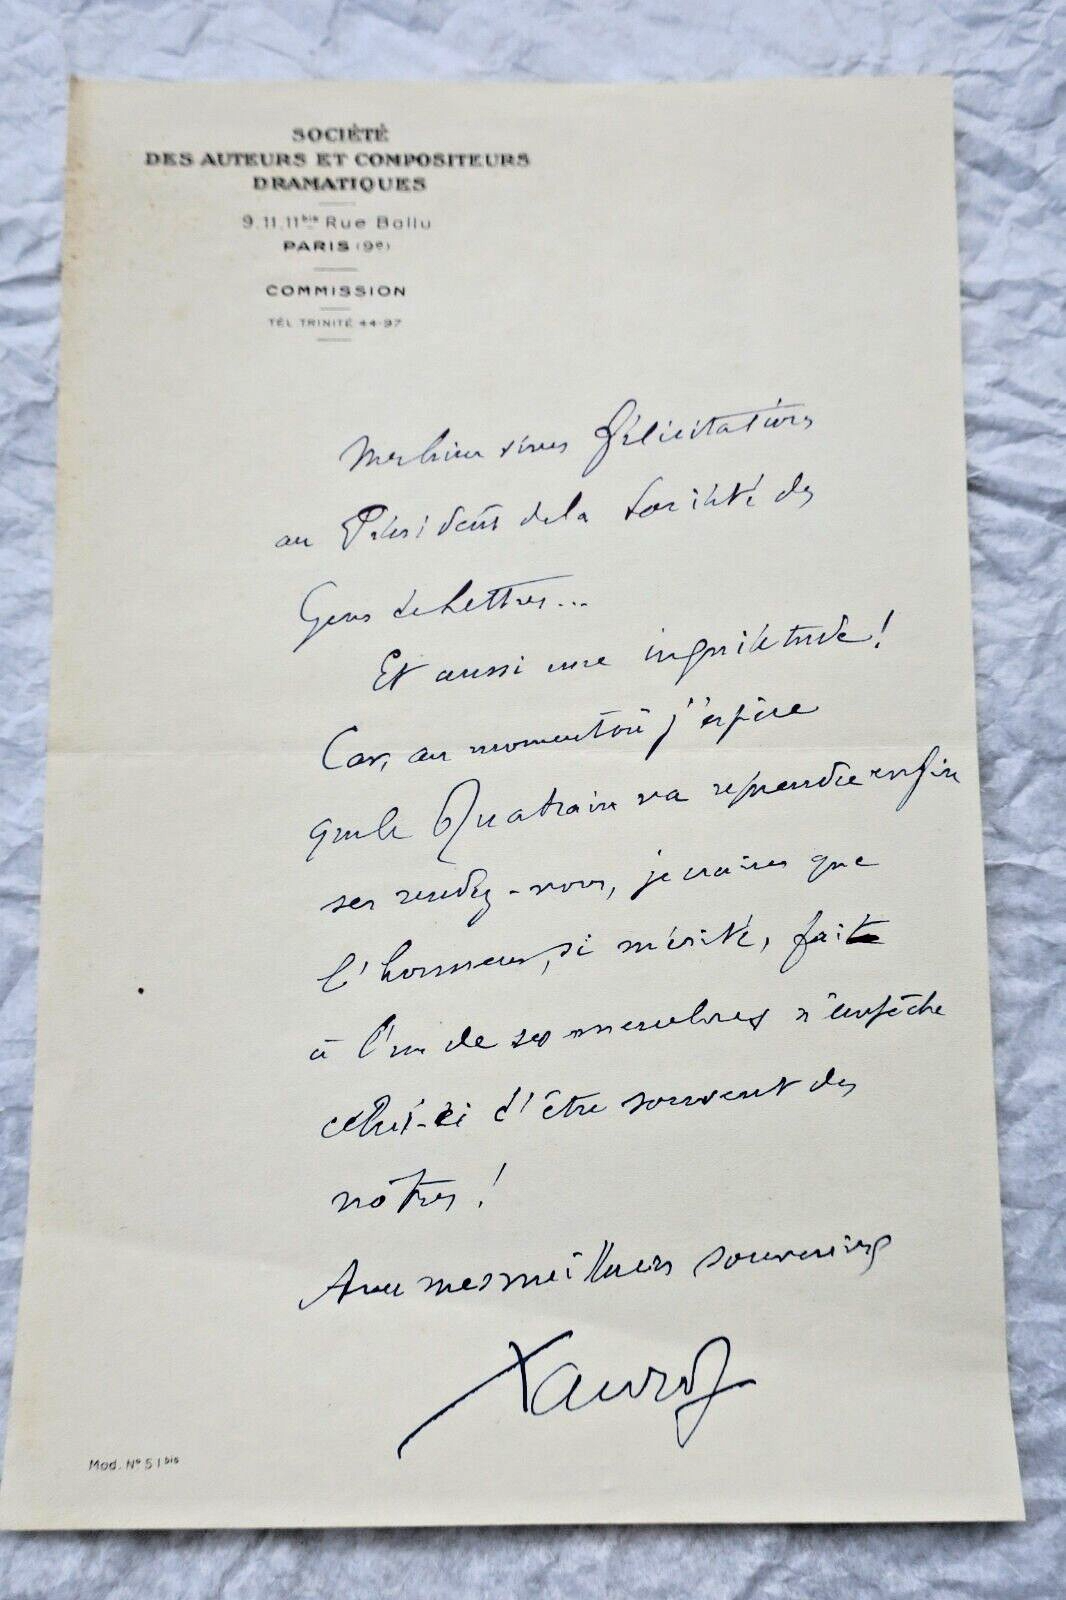 SOCIÉTÉ
DES AUTEURS ET COMPOSITEURS
DRAMATIQUES
9.11.11bis Rue Ballu
PARIS (9e)
COMMISSION
TÉL TRINITÉ 44-97
Mes bien vives félicitations
au Président de la Société des
Gens de Lettres...
Et aussi une inquiétude!
Car, au moment où j'espère
que le Quatrain va reprendre enfin
ses rendez-vous, je crains que
l'honneur, si mérité, fait
à l'un de ses membres n'empêche
celui-ci d'être souvent des
nôtres!
Avec mes meilleurs souvenirs
Xanrof
Mod. No 51bis